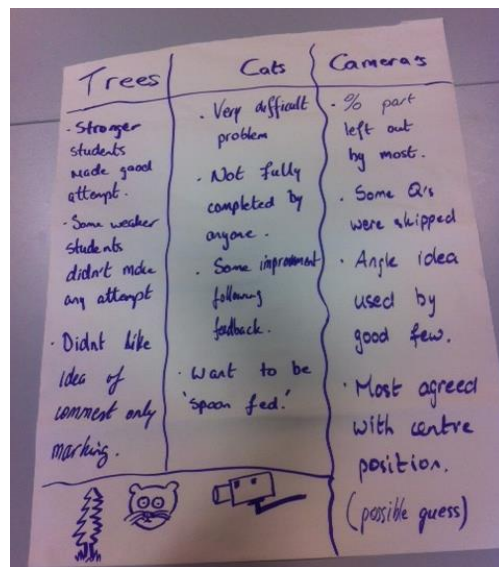 Trees
· Stronger
students
made good
attempt.
· Some weaker
students
didn't make
any attempt
· Didnt like
idea of
comment only
marking.
Cats
· Very difficult
problem
· Not fully
completed by
anyone.
· Some improvment
following
feedback.
· Want to be
'spoon fed.'
Camera's
· % part
left out
by most.
· Some Q's
were skipped
· Angle idea
used by
good few.
· Most agreed
with centre
position.
(possible guess)